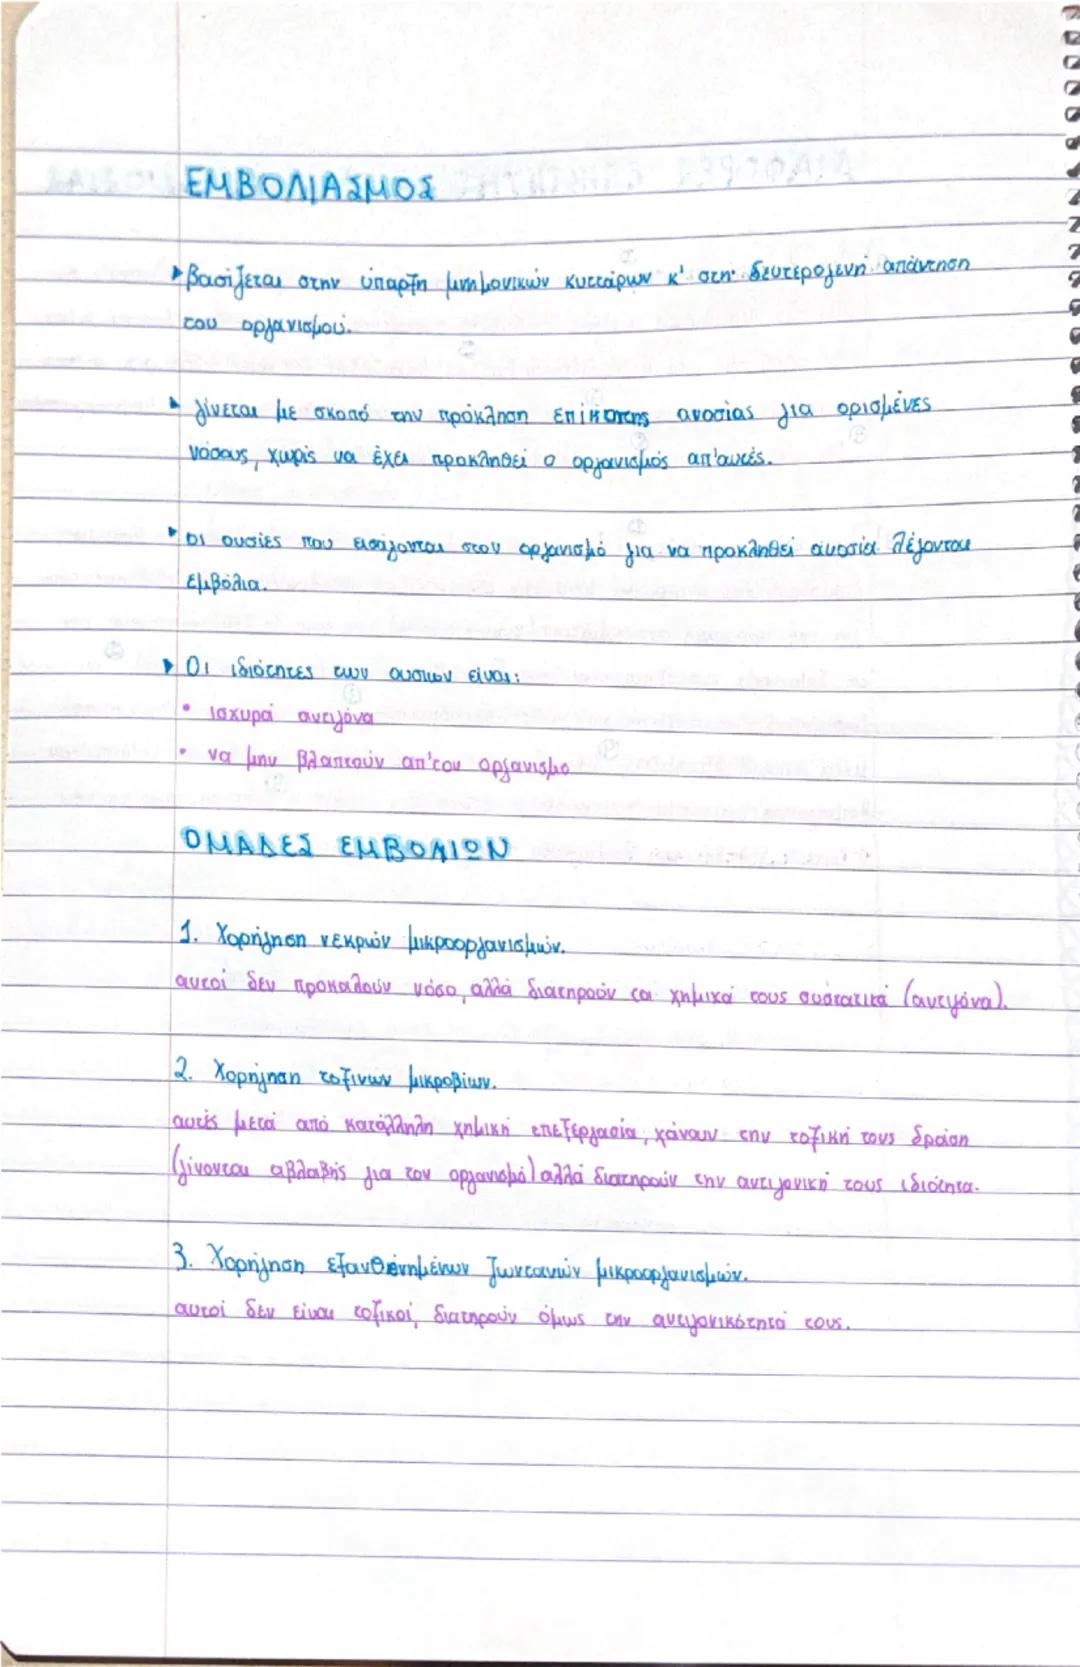 ΕΜΒΟΛΙΑΣΜΟΣ
βασίζεται στην ύπαρξη μνημονικών κυττάρων κ' στη δευτερογενή απάντηση
του οργανισμού.
γίνεται με σκοπό την πρόκληση επίκτητης ανοσίας για ορισμένες
νόσους, χωρίς να έχει προκληθεί ο οργανισμός απ'αυτές.
οι ουσίες που εισάγονται στον οργανισμό για να προκληθεί ανοσία λέγονται
εμβόλια.
Οι ιδιότητες των ουσιών είναι:
• ισχυρά αντιγόνα
• να μην βλαπτούν απ'τον οργανισμο
ΟΜΑΔΕΣ ΕΜΒΟΛΙΩΝ
1. Χορήγηση νεκρών μικροοργανισμών.
αυτοί δεν προκαλούν νόσο, αλλά διατηρούν τα χημικά τους συστατικά (αντιγόνα).
2. Χορήγηση τοξινων μικροβίων.
αυτές μετά από κατάλληλη χημική επεξεργασία, χάνουν την τοξική τους δράση
(γίνονται αβλαβής για τον οργανισμό) αλλά διατηρούν την αντιγονική τους ιδιότητα.
3. Χορήγηση εξασθενημένων ζωντανών μικροοργανισμών.
αυτοί δεν είναι τοξικοί, διατηρούν όμως την αντιγονικότητά τους.